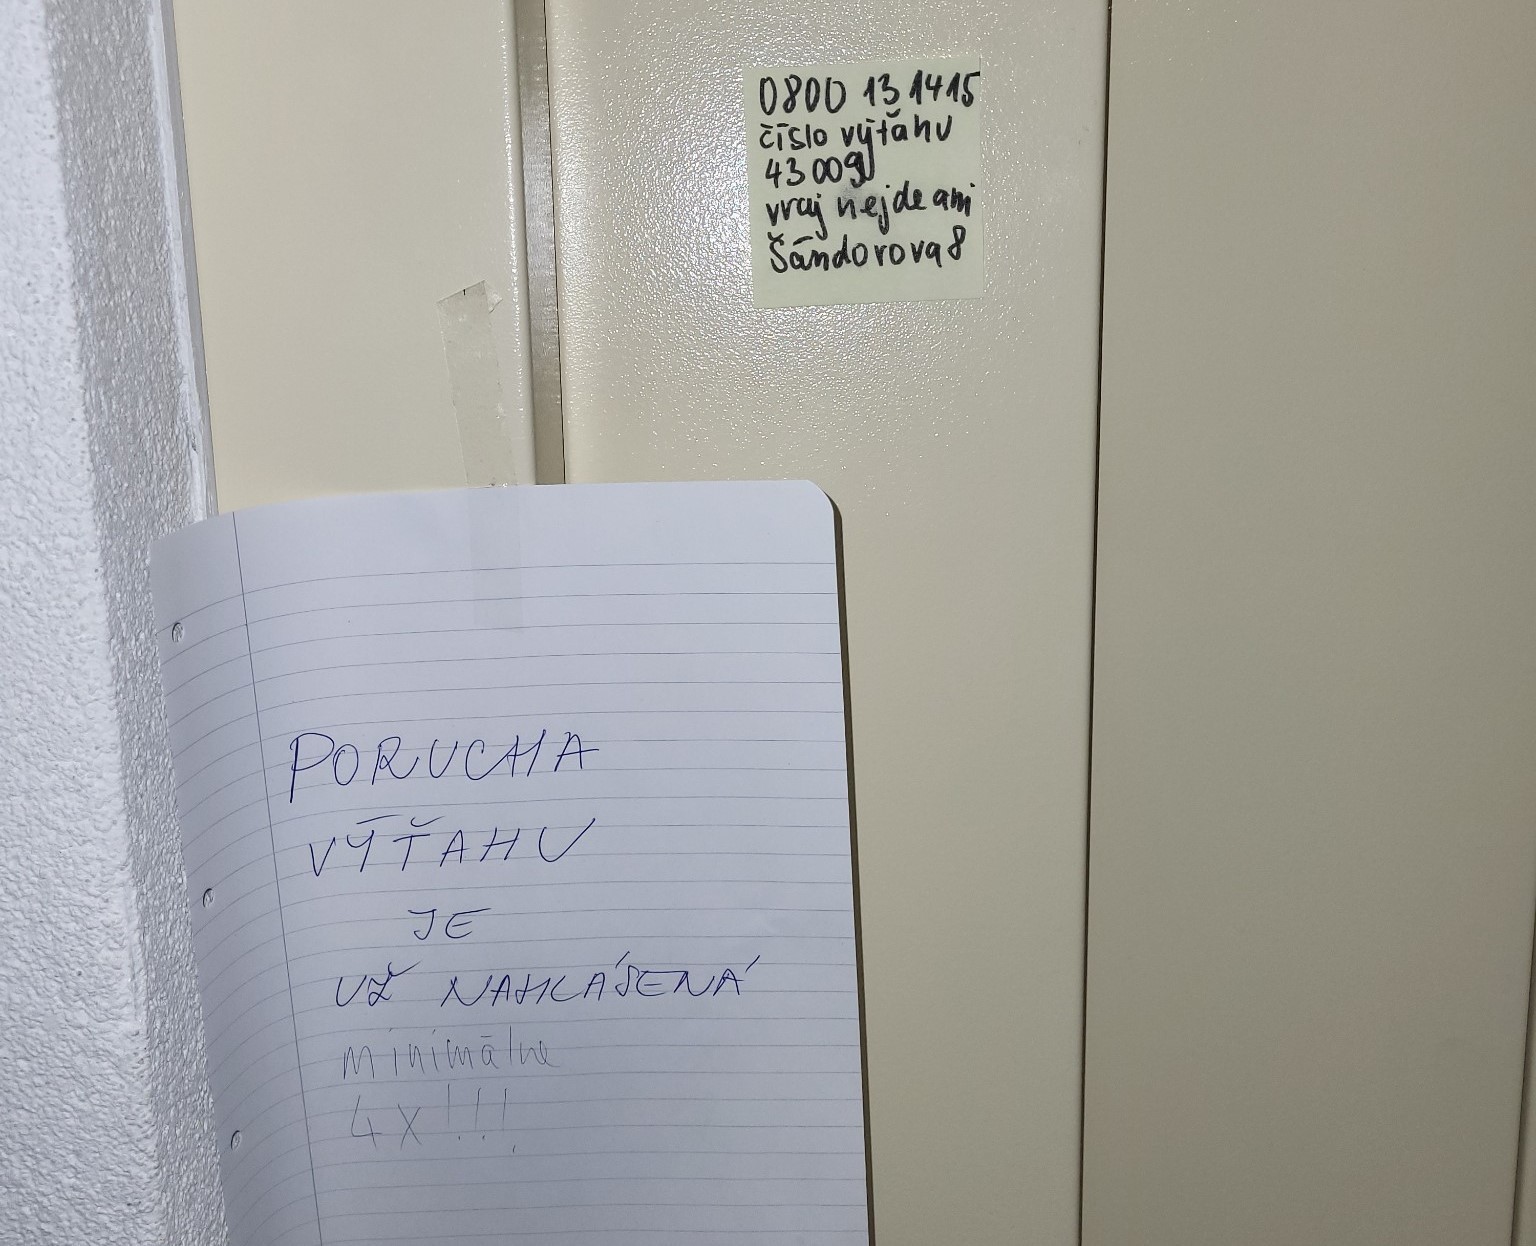 0800 13 1415
číslo výťahu
43009
vraj nejde ani
Šándorova 8
PORUCHA
VÝŤAHU
JE
UŽ NAHLÁSENÁ
minimálne
4x!!!